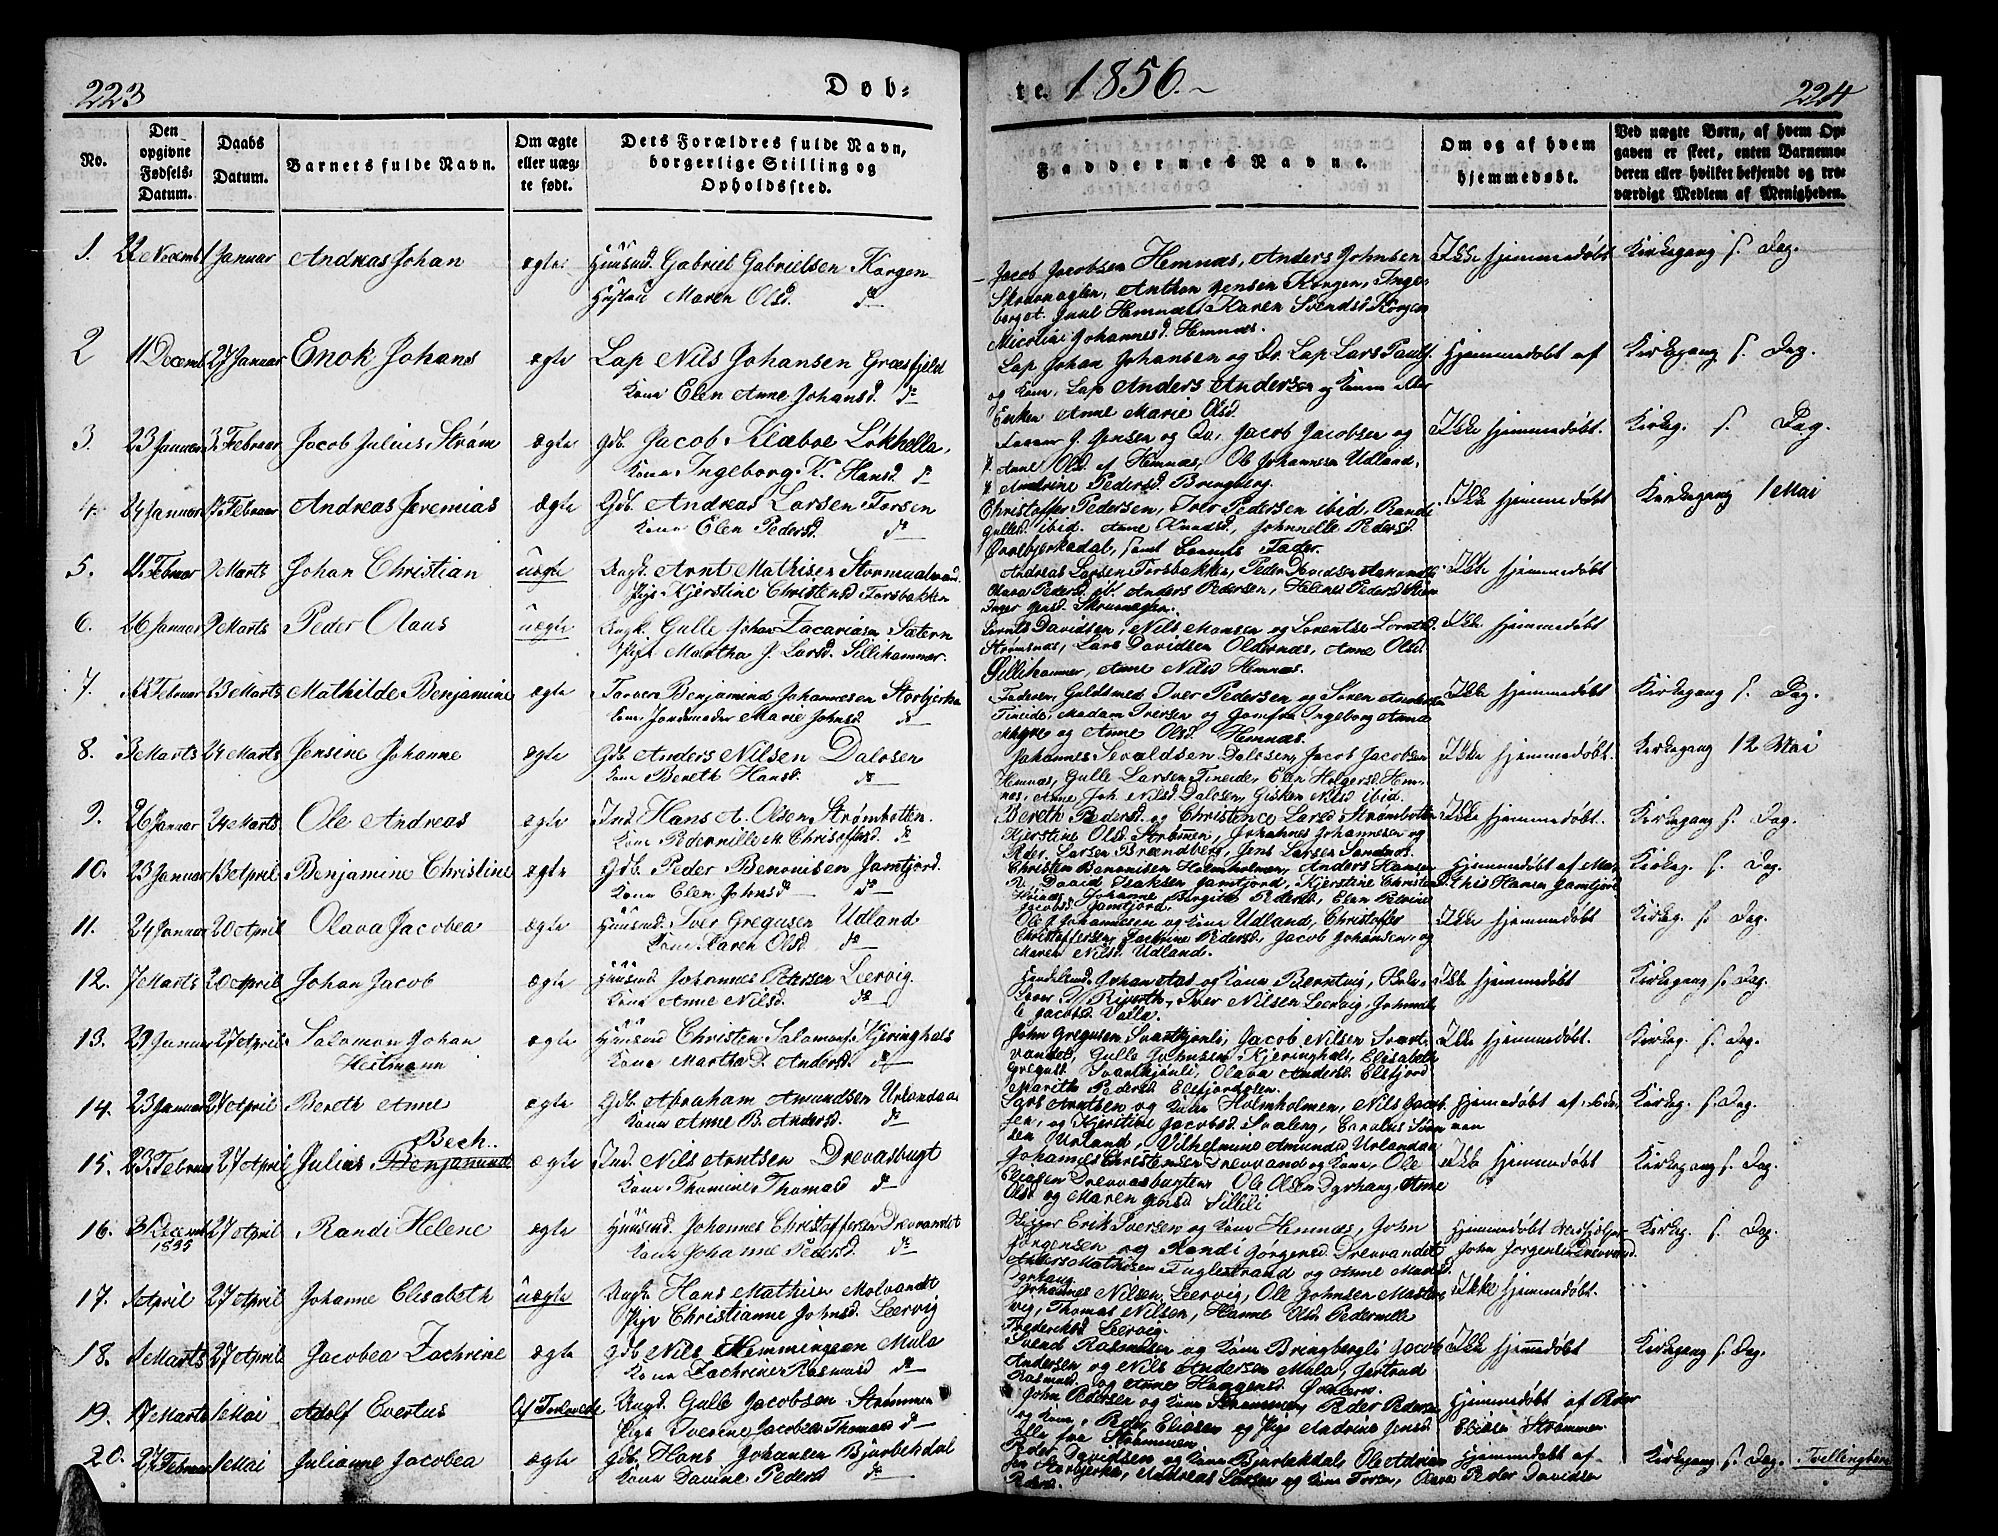 223
Döb-
te. 1856.
224
No.
Den opgivne Fødsels-Datum.
Daabs Datum.
Barnets fulde Navn.
Om ægte eller uæg-te født.
Dets Forældres fulde Navn, borgerlige Stilling og Opholdssted.
Faddernes Navne.
Om og af hvem hjemmedøbt.
Ved uægte Børn, af hvem Op-gaven er skeet, enten Barnemo-deren eller hvilket bekjendt og tro-værdigt Medlem af Menigheden.
1. 22 Novemb 1 Januar Andreas Johan ægte: Huusmd. Gabriel Gabrielsen Korgen
Hustru Maren Olsd. do
Jacob Jacobsen Hemnæs, Anders Johnsen
Anthon Jensen Korgen, Inge-
borget. Juul Hemnæs, Karen Svendsd Korgen
Nicolai Johannesd. Hemnæs.
Ikke hjemmedøbt Kirkegang s. Dag.
2 11 Decemb 27 Januar Enok Johans ægte Lap Nils Johansen Græsfjeld
Kone Elen Anne Johansd. do
Lap Johan Johansen og Lap Lars Pauls.
og Kone, Lap Anders Andersen og Kone eller
Enken Anne Marie Olsd.
Hjemmedøbt af Kirkegang s. Dag.
3 23 Januar 3 Februar Jacob Julius Strøm ægte Gdb. Jacob Klæboe Løkhella,
Kone Ingeborg K. Hansd do
J. Jensen og Jacob Jacobsen og
Anne Olsd. af Hemnæs, Ole Johannesen Udland,
Andrine Pedersd. Bringberg.
Ikke hjemmedøbt. Kirkeg. s. Dag.
4. 24 Januar Februar Andreas Jeremias Ægte Gdb. Andreas Larsen Forsen
Kone Elen Pedersd. do
Christoffer Pedersen, Iver Pedersen ibid, Randi
Gullesd ibid. Anne Knudsd, Johnnelle Pedersd.
samt Barnets Fader.
Ikke hjemmedøbt Kirkegang 1 Mai
5. Februar 9 Marts Johan Christian uægte Ungk. Arnt Mathisen Stormaalvand
Pige Kjerstine Christensd Forsbakken
Andreas Larsen Forsbakken, Peder Davidsen
Olava Pedersd. ob. Anders Pedersen, Helene Pedersd
Inger Jensd.
Ikke hjemmedøbt
6. 26 Januar 9 Marts Peder Olaus uægte Ungk. Gulle Johan Zacariasen Sætern
Pige Martha J. Larsd. Sillihammer.
Lornts Davidsen, Nils Monsen og Lorentse Lorntsd.
Strømsnæs, Lars Davidsen Oldernæs, Anne Olsd.
Sillihammer, Anne Nilsd Hemnæs.
Ikke hjemmedøbt
7. Februar 23 Marts Mathilde Benjamine ægte Benjamind Johannesen Storbjerka
Kone Jordemoder Marie Johnsd. do
Faderen, Guldsmed Iver Pedersen og Søren
Fineide, Madam Iversen og Jomfru Ingeborg Anna
og Anne Olsd. Hemnæs.
Ikke hjemmedøbt Kirkegang s. Dag.
8. Marts 24 Marts Jensine Johanne ægte Gdb. Anders Nilsen Dalosen
Kone Bereth Hansd. do
Johannes Sivaldsen Dalosen, Jacob Jacobsen
Hemnæs, Gulle Larsen Fineide, Elen Holgersd. Hem-
næs, Anne Joh. Nilsd. Dalosen, Gisken Nilsd ibid.
Ikke hjemmedøbt. Kirkegang 12 Mai
9. 26 Januar 24 Marts Ole Andreas ægte Ind Hans A. Olsen Strømbotten
Kone Pedernille M. Chrisoffsd. do
Bereth Pedersd. og Christence Larsd. Strømbotten
Kjerstine Olsd. Strømen, Johannes Johannesen og
Peder Larsen Brændberg, Jens Larsen Sandnæs.
Ikke hjemmedøbt Kirkegang s. Dag.
10. 23 Januar 13 April Benjamine Christine ægte Gdb. Peder Benonisen Jamtjord.
Kone Elen Johnsd do
Christen Benonisen Holmholmen, Anders Hansen
David Isaksen Jamtjord, Kjerstine Christensd
Johanne Birgitte Pedersd, Elen
Jacobsd. Jamtjord.
Hjemmedøbt af Ma-
this Hansen Jamtjord
Kirkeg. s. Dag.
11. 24 Januar 20 April Olava Jacobea ægte Huusmd. Iver Gregusen Udland
Kone Karen Olsd. do
Ole Johannesen og Kone Udland, Christoffer
Christoffersen, Zachrine Pedersd, Jacob Johansen, og
Maren Nilsd Udland.
Ikke hjemmedøbt Kirkeg. s. Dag.
12. 7 Marts 20 April Johan Jacob ægte Huusmd Johannes Petersen Leervig.
Kone Anne Nilsd. do
og Kone Bjerntvig,
Iver Nilsen Leervig,
Jacobsd Valla.
Ikke hjemmedøbt Kirkegang s. Dag.
13. 29 Januar 27 April. Salomon Johan
Heitmann
ægte Huusmd Christen Salamons. Kjeringhals
Kone Martha D. Andersd. do
John Gregusen Svartkjønli, Jacob Nilsen Svart-
vandet, Gulle Johnsen Kjeringhals, Elisabeth
Gregusd. Svartkjønli, Olava Andersd. Elsfjord
Mareth Pedersd Elsfjordosen.
Ikke hjemmedøbt. Kirkeg. s. Dag.
14. 23 Januar 27 April Bereth Anne ægte Gdb. Abraham Amundsen Urlandaa
Kone Anne B. Andersd. do
Lars Arntsen og Kone Holmholmen, Nils Jacob-
sen, og Kjerstine Jacobsd. Svaleng, Carolus Simon
sen Urland, Vilhelmine Amundsd Urlandaa
Hjemmedøbt af Kirkegang s. Dag.
15. 23 Februar 27 April Julius Benjamind Bech. ægte Ind. Nils Arntsen Drevasbugt
Kone Thomine Thomasd do
Johannes Christensen Drevvand og Kone, Ole
Eliasen Drevvasbugten, Ole Olsen Dyrhaug, Anne
Olsd og Maren Jonsd Sillili
Ikke hjemmedøbt Kirkegang s. Dag.
16. 31 Decemb 1855 27 April Randi Helene ægte Huusmd. Johannes Christoffersen Drevvandet
Kone Johanne Pedersd. do
Erik Iversen og Kone Hemnæs, John
Jørgensen og Randi Jørgensd. Drevvandet
Anders Mathisen Fuglestrand og Anne
Dyrhaug
Hjemmedøbt
John Jørgensen Drevvand.
Kirkeg. s. Dag.
17. April 27 April Johanne Elisabeth uægte Ungk Hans Mathisen Molvandt
Pige Christianne Johnsd. Leervig
Johannes Nilsen, Leervig, Ole Johnsen
Thomas Nilsen, Hanne Olsd Pedernille
Frederiksd. Leervig.
Ikke hjemmedøbt.
18. Marts 27 April Jacobea Zachrine ægte Gdb. Nils Hemmingsen Mula
Kone Zachrine Rasmusd do
Svend Rasmusen og Kone Bringbergli Jacob
Andersen og Nils Andersen Mula, Gertrud
Rasmusd. og Anne Haagensd.
Ikke hjemmedøbt Kirkegang s. Dag.
19. 17 Marts 1 Mai Adolf Evertus Af Forlovede Ungk. Gulle Jacobsen Strømmen
Pige Iverine Jacobea Thomasd do
John Pedersen og Kone Strømmen, Peder Peders
og Kone, Peder Eliasen og Pige Andrine Jensd.
alle fra Strømmen
Hjemmedøbt af Peder
Eliasen Strømmen
20. 27 Februar 1 Mai Julianne Jacobea ægte Gdb. Hans Johansen Bjurbekdal
Kone Davine Pedersd do
Peder Davidsen og Kone Bjurbekdal, Ole Adrian
sen Storbjerka, Andreas Larsen og Kone Forsen,
Pedersd.
Hjemmedøbt af
Peder Davidsen
Kirkegang s. Dag. Tvillingbørn